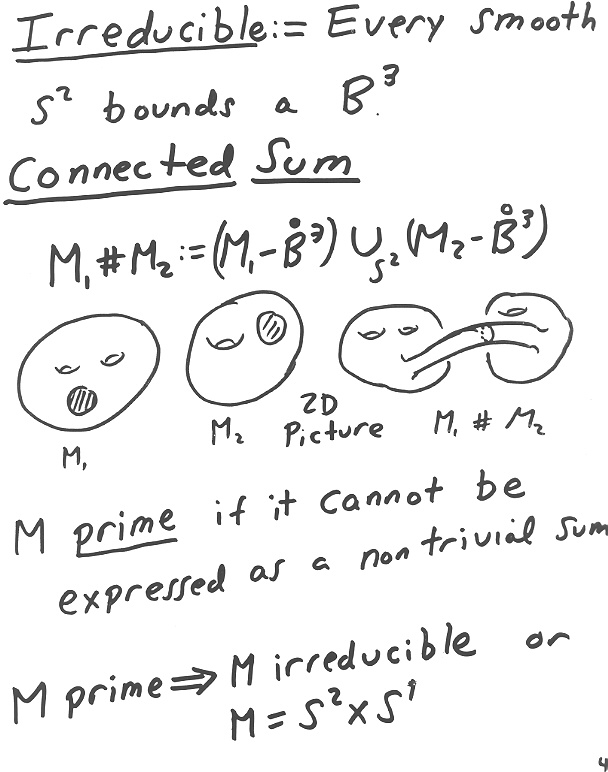 Irreducible:= Every smooth
S² bounds a B³.
Connected Sum
M₁#M₂:=(M₁-B̊³)∪_S²(M₂-B̊³)
M₁
M₂
2D
Picture
M₁ # M₂
M prime if it cannot be
expressed as a nontrivial sum
M prime ⇒ M irreducible or
M = S² x S¹
4